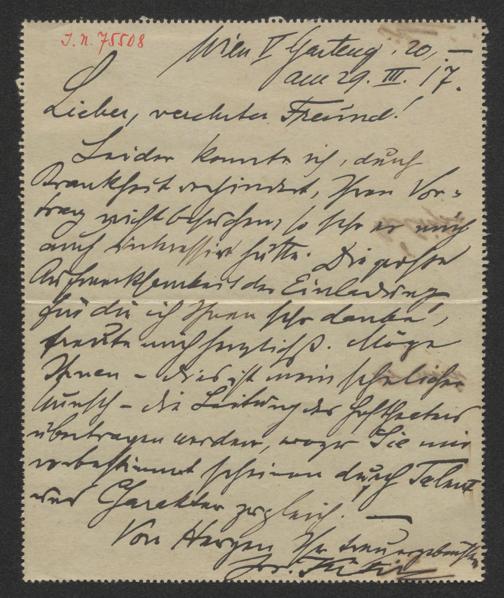 I.N. 75508
Wien V Garteng. 20, –
am 29. III. 17.
Lieber, verehrter Freund!
Leider konnte ich, durch
Krankheit verhindert, Ihren Vor-
trag nicht besuchen, so sehr er mich
auch interessiert hätte. Die große
Aufmerksamkeit der Einladung,
für die ich Ihnen sehr danke,
freute mich herzlichst. Möge
Ihnen – dies ist mein sehnlicher
Wunsch – die Leitung des Hoftheaters
übertragen werden, wozu Sie mir
vorbestimmt scheinen durch Talent
und Charakter zugleich. –
Von Herzen Ihr treuergebenster
Dr.